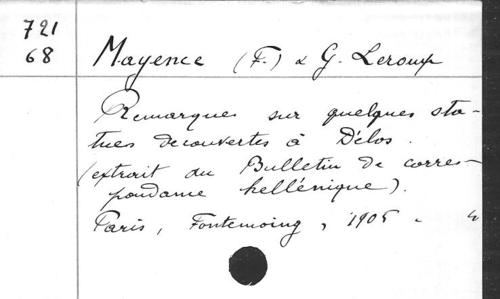 721
68
Mayence (F.) & G. Leroux
Remarques sur quelques sta-
tues découvertes à Délos.
(extrait du Bulletin de corres-
pondance hellénique).
Paris, Fontemoing, 190